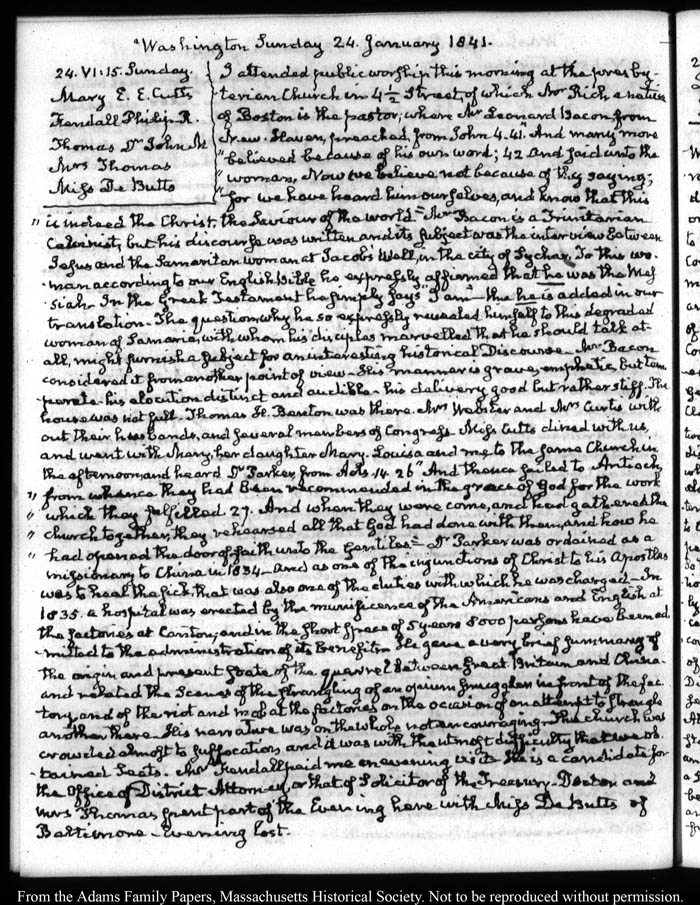 Washington Sunday 24. January 1841.
24. VI:15. Sunday.
Mary E. E. Cutts
Kendall Philip R.
Thomas Dr John M
Mrs Thomas
Miss De Butts
I attended public worship this morning at the presby-
terian Church in 4½ Street, of which Mr Rich, a native
of Boston is the pastor; where Mr Leonard Bacon from
New-Haven, preached, from John 4.41. And many more
"believed because of his own word; 42 and said unto the
"woman, Now we believe not because of thy saying;
"for we have heard him ourselves, and know that this
"is indeed the Christ, the Saviour of the world"— Mr Bacon is a Trinitarian
Calvinist, but his discourse was written and its subject was the interview between
Jesus and the Samaritan woman at Jacob's Well, in the city of Sychar, To this wo-
man according to our English Bible he expressly affirmed that he was the Mes-
siah. In the Greek Testament he simply says "I am"— the he is added in our
translation. The question, why he so expressly revealed himself to this degraded
woman of Samaria, with whom his disciples marvelled that he should talk at
all, might furnish a subject for an interesting historical Discourse. Mr Bacon
considered it from another point of view. His manner is grave, emphatic, but tem-
perate. his elocution distinct and audible. his delivery good but rather stiff. The
house was not full. Thomas H. Benton was there. Mrs Webster and Mrs Curtis with
out their husbands, and several members of Congress. Miss Cutts dined with us,
and went with Mary, her daughter Mary-Louisa and me to the same Church in
the afternoon, and heard Dr Parker, from Acts. 14. 26 "And thence sailed to Antioch,
"from whence they had been recommended in the grace of God for the work
"which they fulfilled 27. And when they were come, and had gathered the
"church together, they rehearsed all that God had done with them, and how he
"had opened the door of faith unto the Gentiles"— Dr Parker was ordained as a
missionary to China in 1834— and as one of the injunctions of Christ to his Apostles
was to heal the sick, that was also one of the duties with which he was charged— In
1835. a hospital was erected by the munificence of the Americans and English at
the factories at Canton, and in the short space of 5 years 8000 persons have been ad-
mitted to the administration of its benefits. He gave a very brief summary of
the origin and present state of the quarrel between Great-Britain and China.
and related the scenes of the strangling of an opium smuggler in front of the fac-
tory, and of the riot and mob at the factories on the occasion of an attempt to strangle
another there. His narrative was on the whole not encouraging. The church was
crowded almost to suffocation, and it was with the utmost difficulty that we ob-
tained seats. Mr Kendall paid me an evening visit. He is a candidate for
the Office of District Attorney, or that of Solicitor of the Treasury. Doctor and
Mrs Thomas spent part of the Evening here with Miss De Butts of
Baltimore. Evening lost.
From the Adams Family Papers, Massachusetts Historical Society. Not to be reproduced without permission.